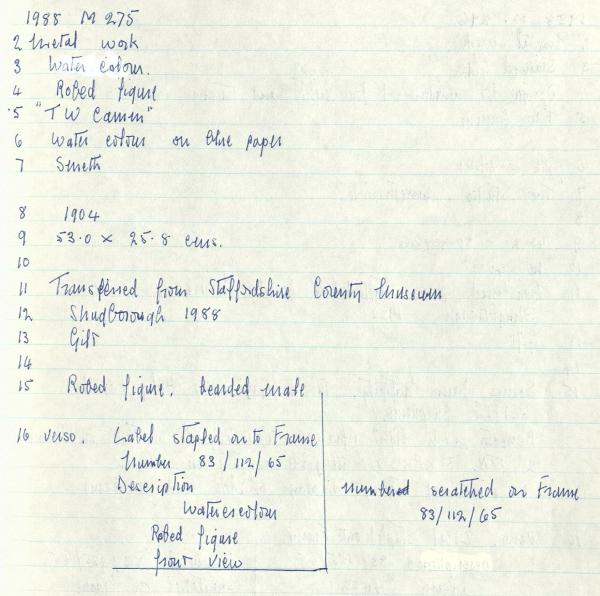 1988 M 275
2 Metal work
3 Water colour.
4 Robed figure
5 "T W Camm"
6 Water colour on blue paper
7 Smeth
8 1904
9 53.0 x 25.8 cms.
10
11 Transferred from Staffordshire County Museum
12 Shugborough 1988
13 Gift
14
15 Robed figure. bearded male
16 verso. Label stapled on to Frame
Number 83/112/65
Description
Watercolour
Robed figure
front view
numbered scratched on Frame
83/112/65